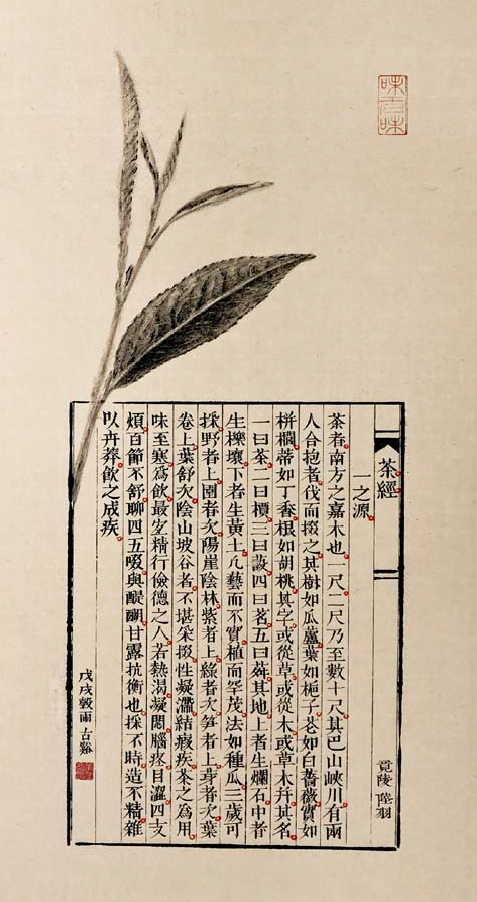 味无味
茶經
竟陵 陸羽
一之源
茶者南方之嘉木也一尺二尺乃至數十尺其巴山峽川有兩
人合抱者伐而掇之其樹如瓜蘆葉如梔子花如白薔薇實如
栟櫚蒂如丁香根如胡桃其字或從草或從木或草木并其名
一曰茶二曰檟三曰蔎四曰茗五曰荈其地上者生爛石中者
生櫟壤下者生黃土凡藝而不實植而罕茂法如種瓜三歲可
採野者上園者次陽崖陰林紫者上綠者次笋者上芽者次葉
卷上葉舒次陰山坡谷者不堪采掇性凝滯結瘕疾茶之為用
味至寒為飲最宜精行儉德之人若熱渴凝悶腦疼目澀四支
煩百節不舒聊四五啜與醍醐甘露抗衡也採不時造不精雜
以卉莽飲之成疾
戊戌穀雨 古谿